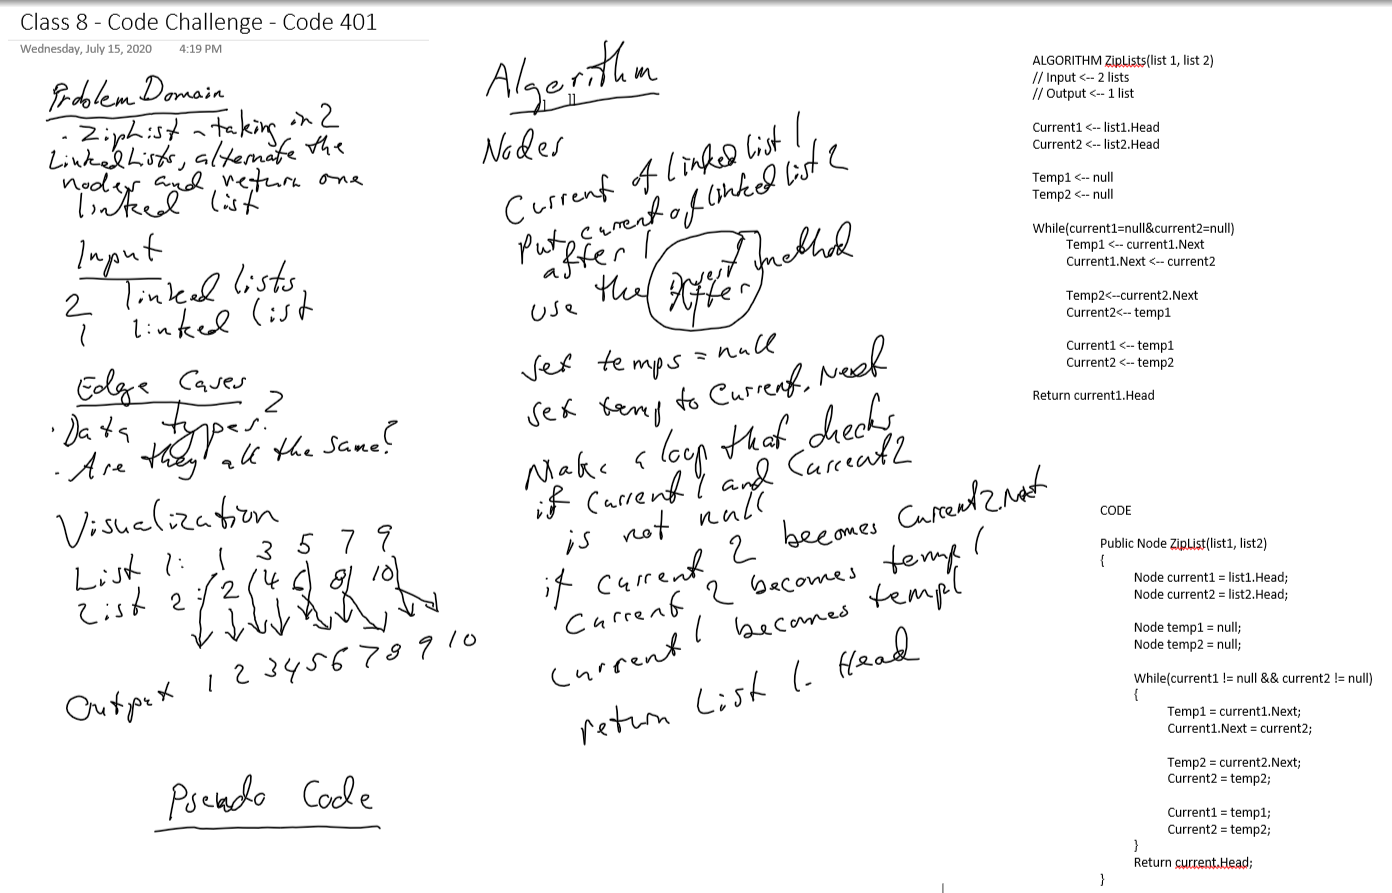 Class 8 - Code Challenge - Code 401
Wednesday, July 15, 2020 4:19 PM
Problem Domain
- ZipList - taking in 2
Linked Lists, alternate the
nodes and return one
linked list
Input
2 linked lists
1 linked list
Edge Cases
- Data types?
- Are they all the same?
Visualization
List 1: 1 3 5 7 9
List 2: 2 4 6 8 10
Output 1 2 3 4 5 6 7 8 9 10
Pseudo Code
Algorithm
Nodes
Current of linked list 1
Put current of linked list 2
after 1
use the Insert After method
Set temps = null
Set temp to Current.Next
Make a loop that checks
if Current 1 and Current2
is not null
if current 2 becomes Current2.Next
Current 2 becomes temp 1
Current 1 becomes temp1
return List 1. Head
ALGORITHM ZipLists(list 1, list 2)
// Input <-- 2 lists
// Output <-- 1 list
Current1 <-- list1.Head
Current2 <-- list2.Head
Temp1 <-- null
Temp2 <-- null
While(current1=null&current2=null)
Temp1 <-- current1.Next
Current1.Next <-- current2
Temp2<--current2.Next
Current2<-- temp1
Current1 <-- temp1
Current2 <-- temp2
Return current1.Head
CODE
Public Node ZipList(list1, list2)
{
Node current1 = list1.Head;
Node current2 = list2.Head;
Node temp1 = null;
Node temp2 = null;
While(current1 != null && current2 != null)
{
Temp1 = current1.Next;
Current1.Next = current2;
Temp2 = current2.Next;
Current2 = temp2;
Current1 = temp1;
Current2 = temp2;
}
Return current.Head;
}